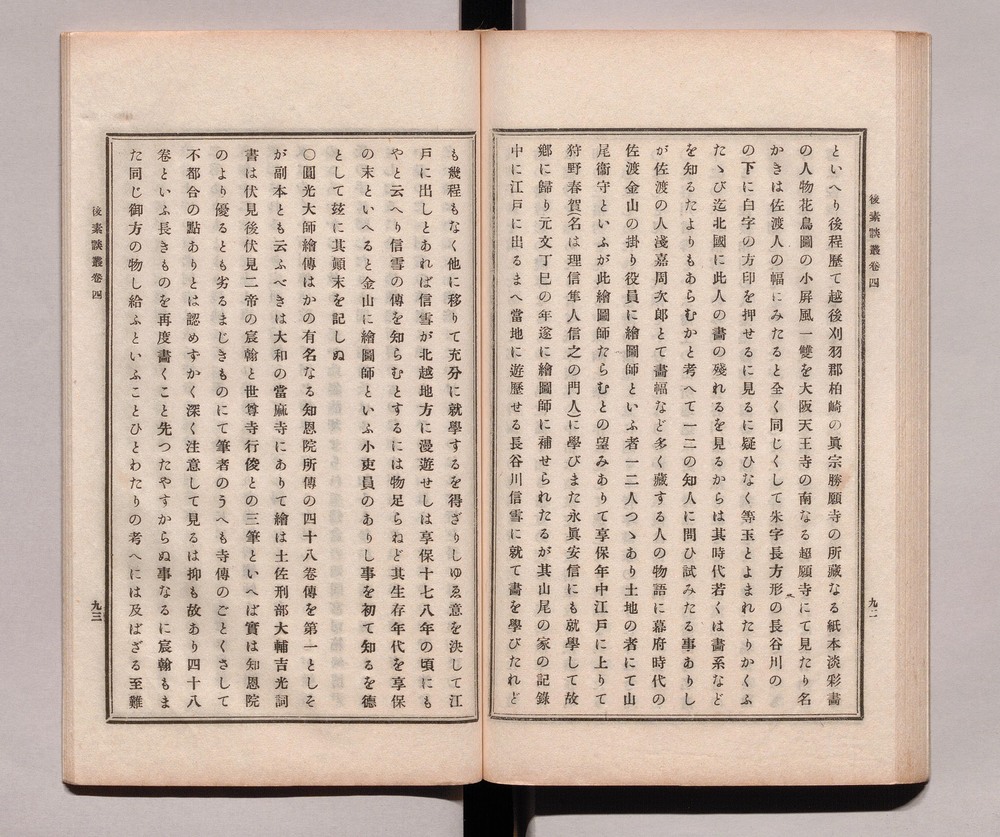 後素談叢卷四
九二
といへり後程歷て越後刈羽郡柏崎の眞宗勝願寺の所藏なる紙本淡彩畵
の人物花鳥圖の小屛風一雙を大阪天王寺の南なる超願寺にて見たり名
かきは佐渡人の幅にみたると全く同じくして朱字長方形の長谷川の
の下に白字の方印を押せるに見るに疑ひなく等玉とよまれたりかくふ
たゝび迄北國に此人の畵の殘れるを見るからは其時代若くは畵系など
を知るたよりもあらむかと考へて一二の知人に問ひ試みたる事ありし
が佐渡の人淺嘉周次郎とて畵幅など多く藏する人の物語に幕府時代の
佐渡金山の掛り役員に繪圖師といふ者一二人つゝあり土地の者にて山
尾衞守といふが此繪圖師たらむとの望みありて享保年中江戸に上りて
狩野春賀(名は理信隼人信之の門人)に學びまた永眞安信にも就學して故
鄕に歸り元文丁巳の年遂に繪圖師に補せられたるが其山尾の家の記錄
中に江戸に出るまへ當地に遊歷せる長谷川信雪に就て畵を學びたれど
も幾程もなく他に移りて充分に就學するを得ざりしゆゑ意を決して江
戸に出しとあれば信雪が北越地方に漫遊せしは享保十七八年の頃にも
やと云へり信雪の傳を知らむとするには物足らねど其生存年代を享保
の末といへると金山に繪圖師といふ小吏員のありし事を初て知るを德
として玆に其顚末を記しぬ
〇圓光大師繪傳はかの有名なる知恩院所傳の四十八卷傳を第一としそ
が副本とも云ふべきは大和の當麻寺にありて繪は土佐刑部大輔吉光詞
書は伏見後伏見二帝の宸翰と世尊寺行俊との三筆といへば實は知恩院
のより優るとも劣るまじきものにて筆者のうへも寺傳のごとくさして
不都合の點ありとは認めすかく深く注意して見るは抑も故あり四十八
卷といふ長きものを再度畵くこと先つたやすからぬ事なるに宸翰もま
た同じ御方の物し給ふといふことひとわたりの考へには及ばざる至難
後素談叢卷四
九三